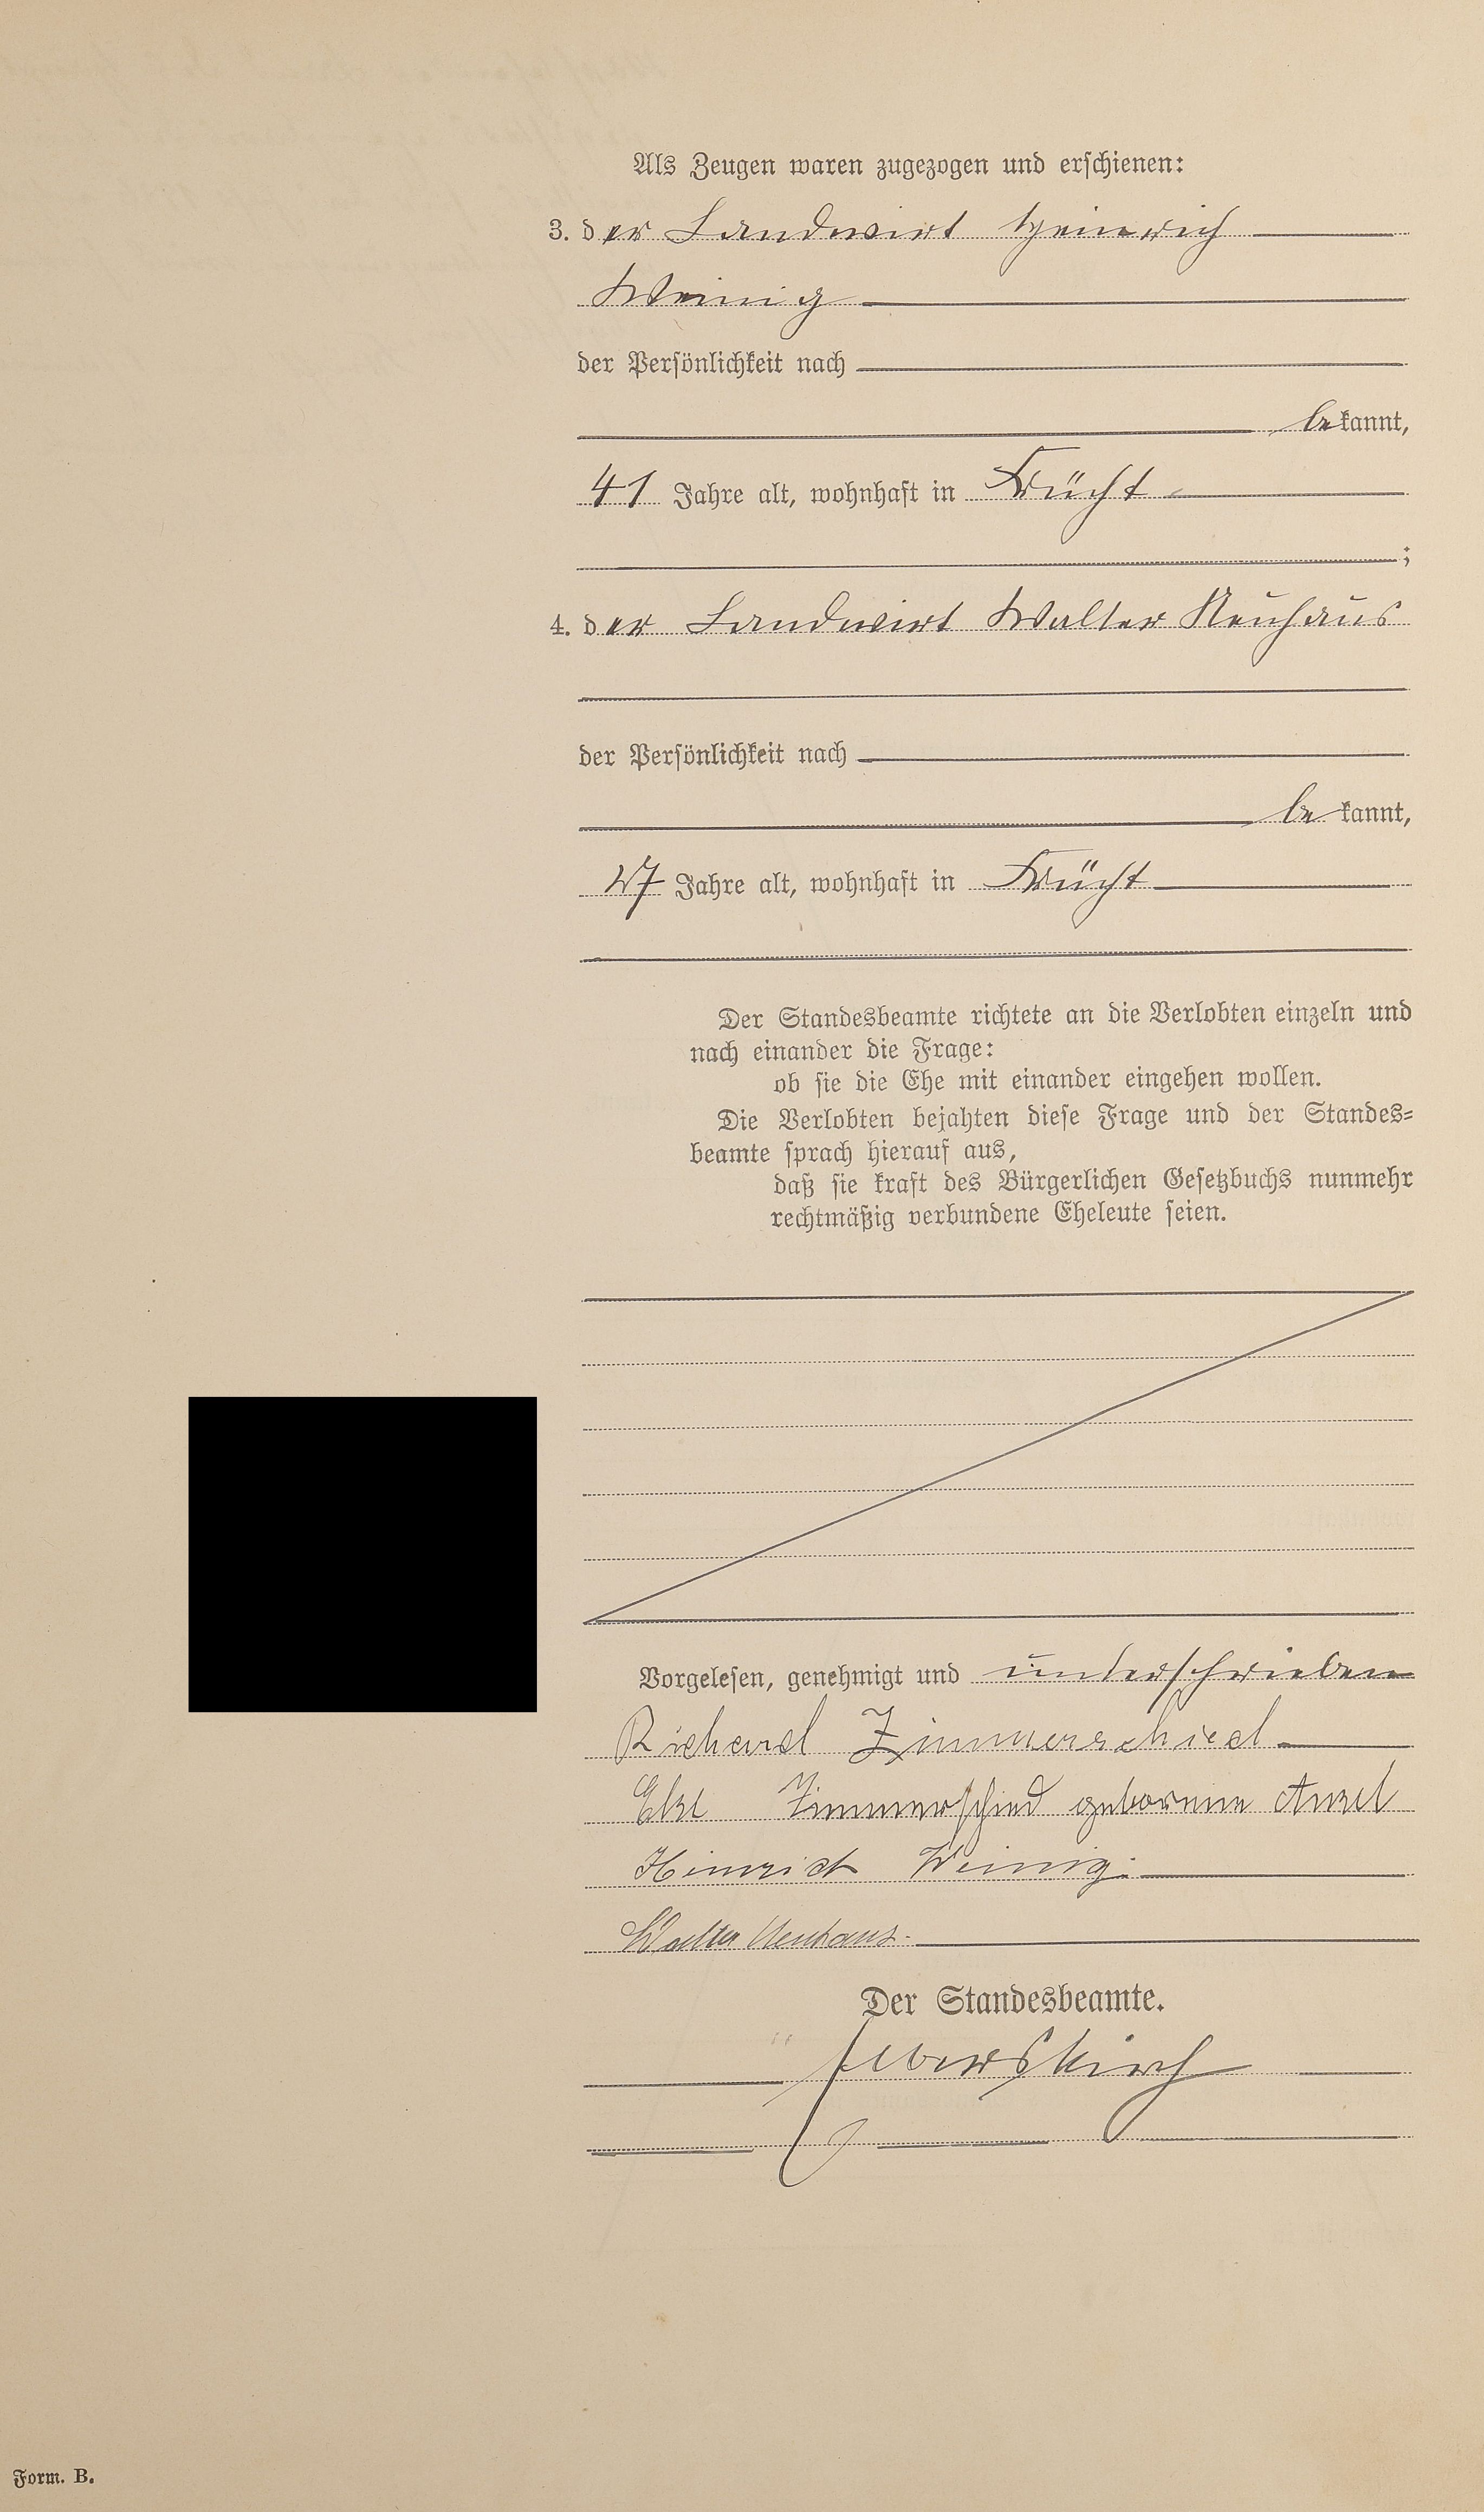 Als Zeugen waren zugezogen und erschienen:
3. der Landwirt Heinrich
Weinig
der Persönlichkeit nach
bekannt,
41 Jahre alt, wohnhaft in Frücht
;
4. der Landwirt Walter Neuhaus
der Persönlichkeit nach
bekannt,
27 Jahre alt, wohnhaft in Frücht
Der Standesbeamte richtete an die Verlobten einzeln und
nach einander die Frage:
ob sie die Ehe mit einander eingehen wollen.
Die Verlobten bejahten diese Frage und der Standes-
beamte sprach hierauf aus,
daß sie kraft des Bürgerlichen Gesetzbuchs nunmehr
rechtmäßig verbundene Eheleute seien.
Vorgelesen, genehmigt und unterschrieben
Richard Zimmerschied
Zimmerschied geborene
Heinrich Weinig.
Walter Neuhaus.
Der Standesbeamte.
Form. B.